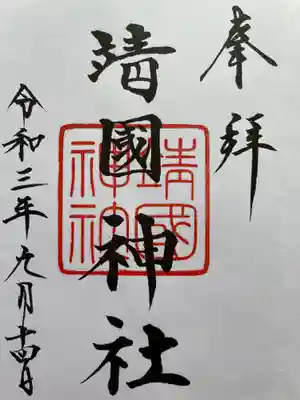 奉拝
靖國神社
靖國
神社
令和三年九月十四日